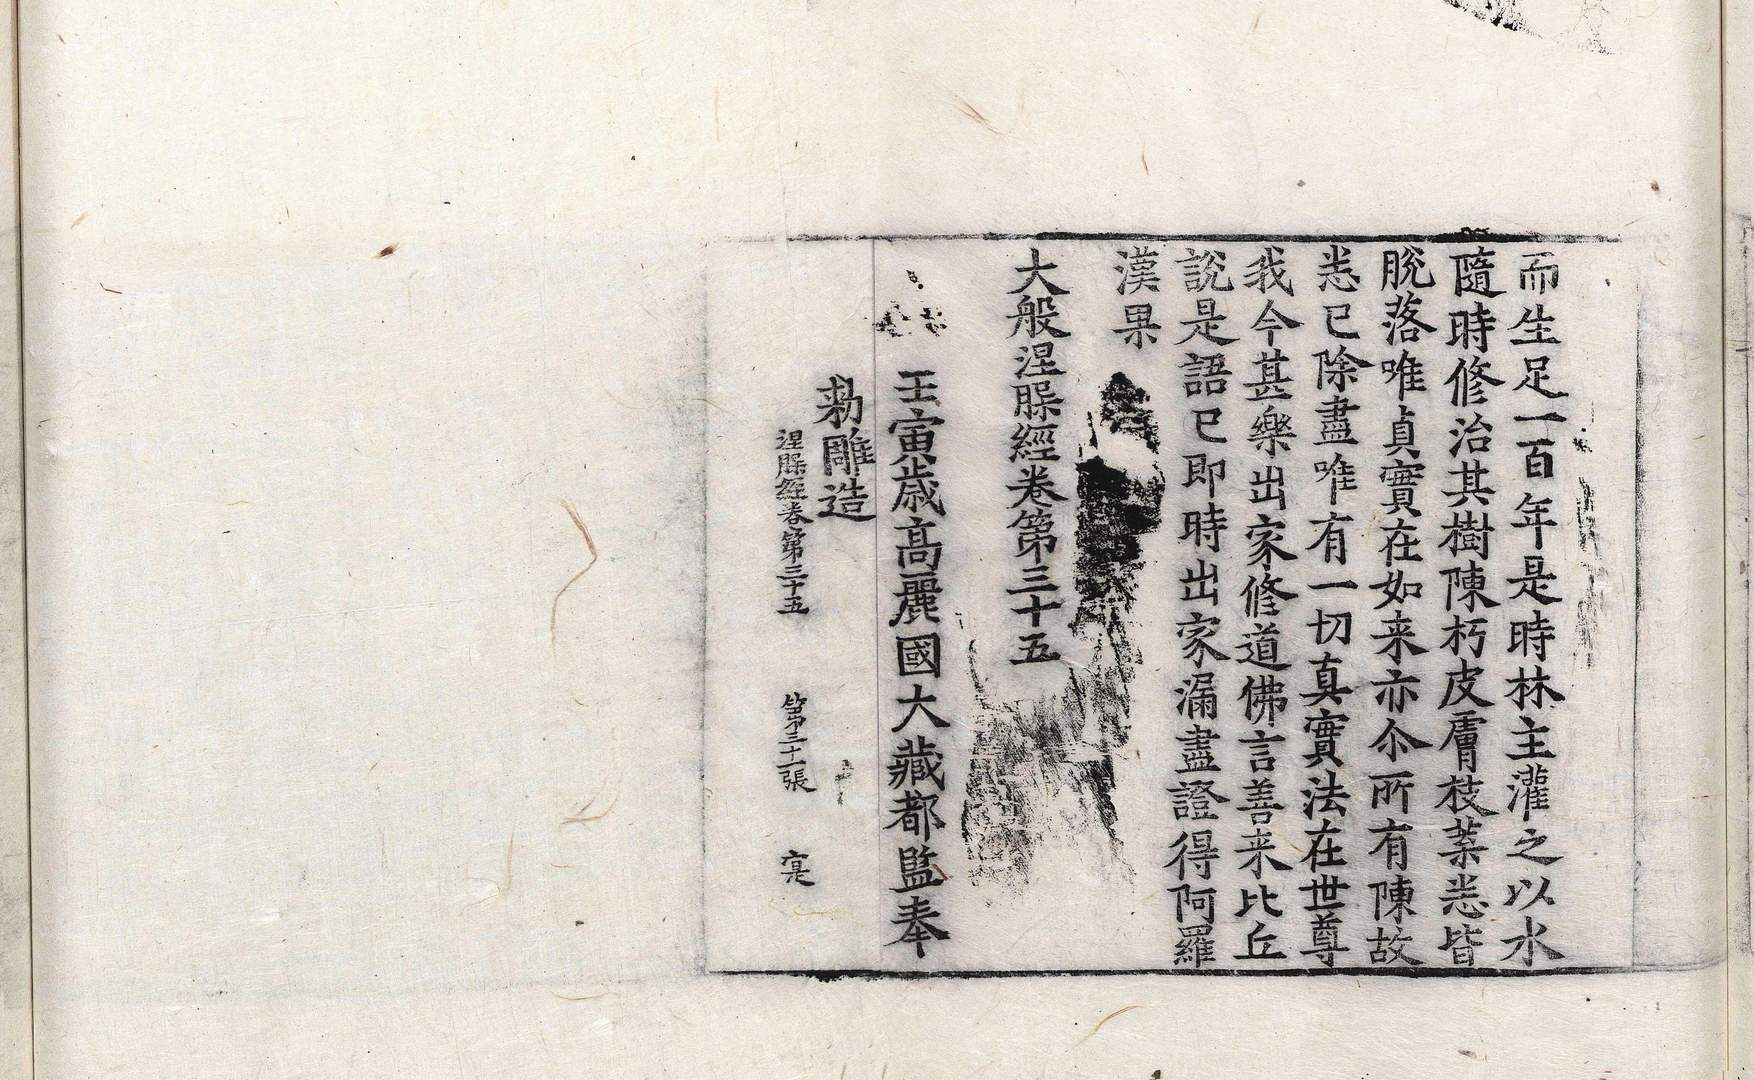 而生足一百年是時林主灌之以水
隨時修治其樹陳朽皮膚枝葉悉皆
脫落唯貞實在如来亦尒所有陳故
悉已除盡唯有一切真實法在世尊
我今甚樂出家修道佛言善来比丘
說是語已即時出家漏盡證得阿羅
漢果
大般涅槃經卷第三十五
壬寅歲高麗國大藏都監奉
勑雕造
涅槃經卷第三十五 第三十一張